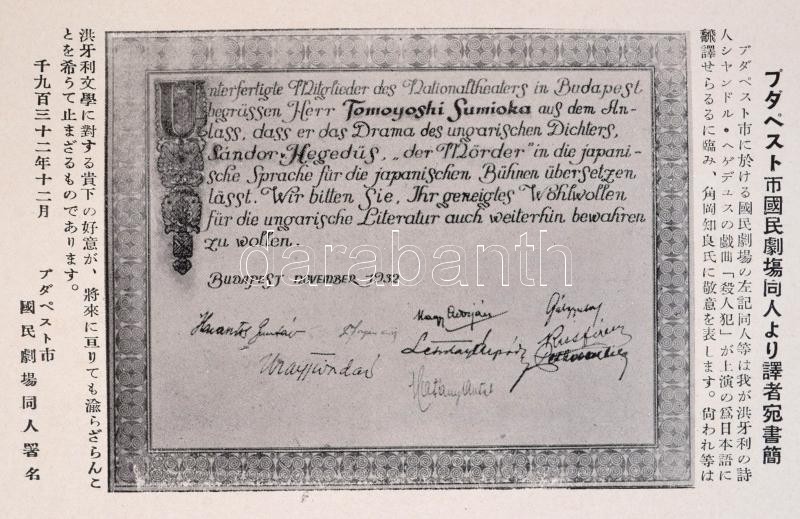 ブダペスト市國民劇場同人より譯者宛書簡
ブダペスト市に於ける國民劇場の左記同人等は我が洪牙利の詩
人シヤンドル・ヘゲデュスの戯曲「殺人犯」が上演の爲日本語に
飜譯せらるるに臨み、角岡知良氏に敬意を表します。尙われ等は
Unterfertigte Mitglieder des Nationaltheaters in Budapest
begrüssen Herr Tomoyoshi Sumioka aus dem An-
lass, dass er das Drama des ungarischen Dichters,
Sándor Hegedüs, „der Mörder" in die japani-
sche Sprache für die japanischen Bühnen übersetzen
lässt. Wir bitten Sie, Ihr geneigtes Wohlwollen
für die ungarische Literatur auch weiterhin bewahren
zu wollen.
BUDAPEST NOVEMBER 1932
darabanth
洪牙利文學に對する貴下の好意が、將來に亘りても渝らざらんこ
とを希うて止まざるものであります。
千九百三十二年十二月
ブダペスト市
國民劇場同人署名